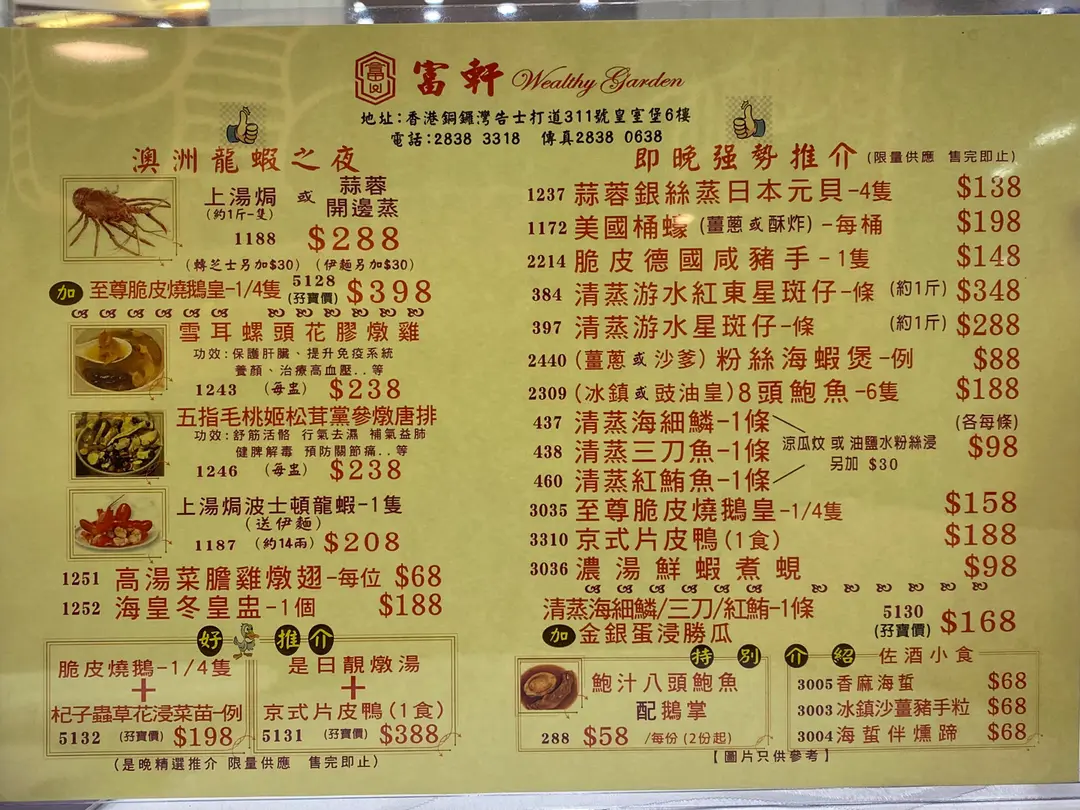 富軒 Wealthy Garden
地址:香港銅鑼灣告士打道311號皇室堡6樓
電話:2838 3318 傳真2838 0638
澳洲龍蝦之夜
上湯焗 或 蒜蓉開邊蒸
(約1斤一隻)
1188 $288
(轉芝士另加$30) (伊麵另加$30)
加 至尊脆皮燒鵝皇-1/4隻 5128 (孖寶價) $398
雪耳螺頭花膠燉雞
功效:保護肝臟、提升免疫系統
養顏、治療高血壓..等
1243 (每盅) $238
五指毛桃姬松茸黨參燉唐排
功效:舒筋活骼 行氣去濕 補氣益肺
健脾解毒 預防關節痛..等
1246 (每盅) $238
上湯焗波士頓龍蝦-1隻
(送伊麵)
1187 (約14兩) $208
1251 高湯菜膽雞燉翅-每位 $68
1252 海皇冬皇盅-1個 $188
好推介
脆皮燒鵝-1/4隻
+
杞子蟲草花浸菜苗-例
5132 (孖寶價) $198
是日靚燉湯
+
京式片皮鴨(1食)
5131 (孖寶價) $388
(是晚精選推介 限量供應 售完即止)
即晚强勢推介 (限量供應 售完即止)
1237 蒜蓉銀絲蒸日本元貝-4隻 $138
1172 美國桶蠔 (薑蔥或酥炸) -每桶 $198
2214 脆皮德國咸豬手-1隻 $148
384 清蒸游水紅東星斑仔-條 (約1斤) $348
397 清蒸游水星斑仔-條 (約1斤) $288
2440 (薑蔥或沙爹) 粉絲海蝦煲-例 $88
2309 (冰鎮或豉油皇) 8頭鮑魚-6隻 $188
437 清蒸海細鱗-1條
438 清蒸三刀魚-1條
460 清蒸紅鮋魚-1條
涼瓜炆 或 油鹽水粉絲浸
另加 $30
(各每條)
$98
3035 至尊脆皮燒鵝皇-1/4隻 $158
3310 京式片皮鴨(1食) $188
3036 濃湯鮮蝦煮蜆 $98
清蒸海細鱗/三刀/紅鮋-1條
加 金銀蛋浸勝瓜 5130 (孖寶價) $168
特別介紹
鮑汁八頭鮑魚
配鵝掌
288 $58 /每份 (2份起)
佐酒小食
3005 香麻海蜇 $68
3003 冰鎮沙薑豬手粒 $68
3004 海蜇伴燻蹄 $68
【圖片只供參考】